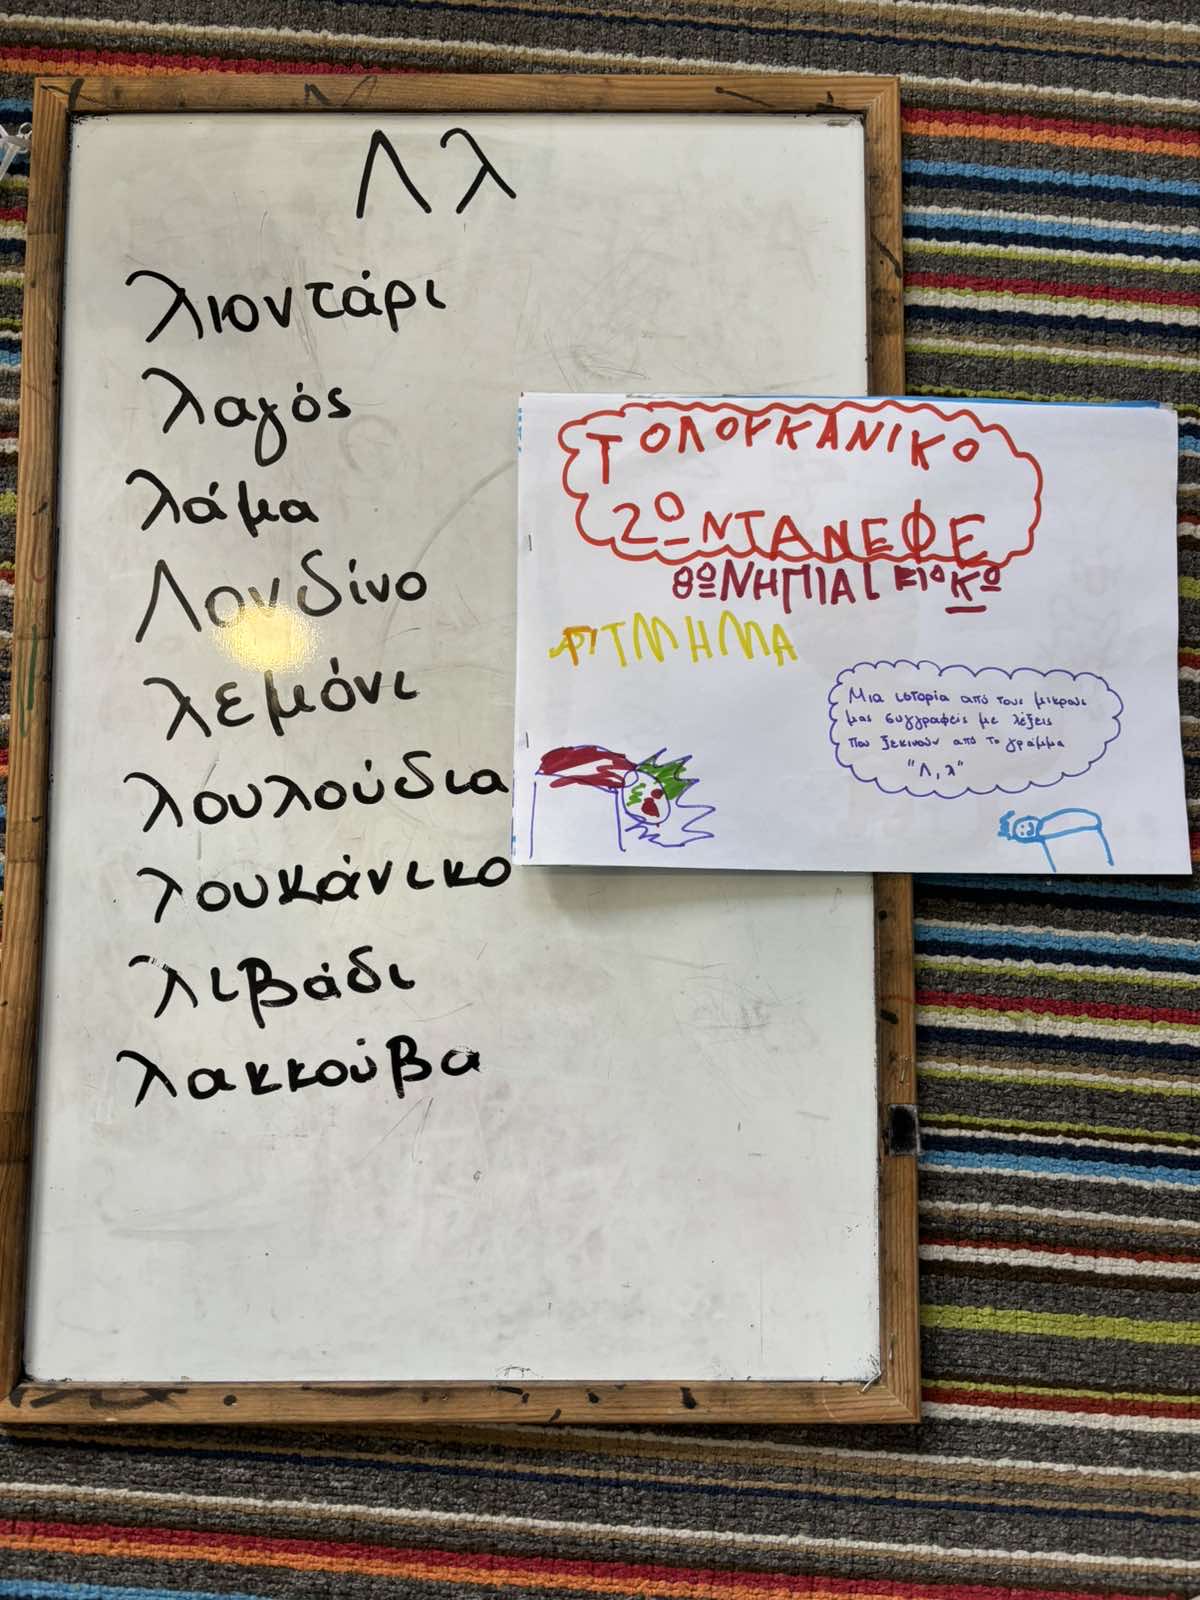 Λ λ
λιοντάρι
λαγός
λάμα
Λονδίνο
λεμόνι
λουλούδια
λουκάνικο
λιβάδι
λακκούβα
ΤΟΛΟΥΚΑΝΙΚΟ
ΖΩΝΤΑΝΕΦΕ
ΘΩΝΗΠΙΑΓΕΙΟΚΩ
ΤΜΗΜΑ
Μια ιστορία από τους μικρούς
μας συγγραφείς με λέξεις
που ξεκινούν από το γράμμα
"Λ, λ"